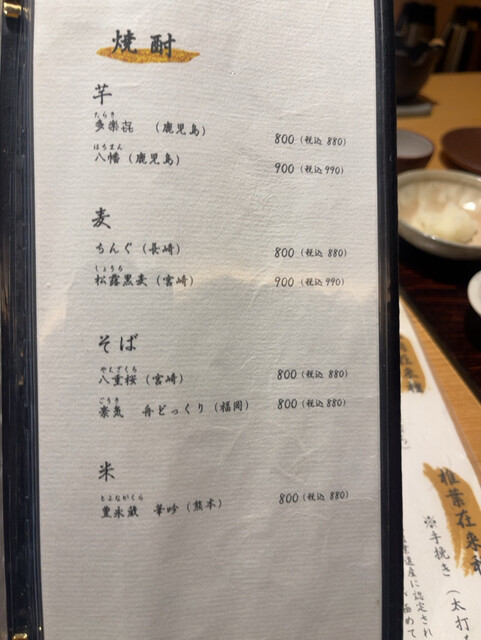 焼酎
芋
たらき
多楽㐂 (鹿児島) 800 (税込 880)
はちまん
八幡 (鹿児島) 900 (税込 990)
麦
ちんぐ (長崎) 800 (税込 880)
しょうろ
松露黒麦 (宮崎) 900 (税込 990)
そば
やえざくら
八重桜 (宮崎) 800 (税込 880)
ごうき
舟どっくり (福岡) 800 (税込 880)
米
とよながくら
豊永蔵 華吟 (熊本) 800 (税込 880)
椎葉在来
※手挽き (太打
業遺産に認定され
極めて